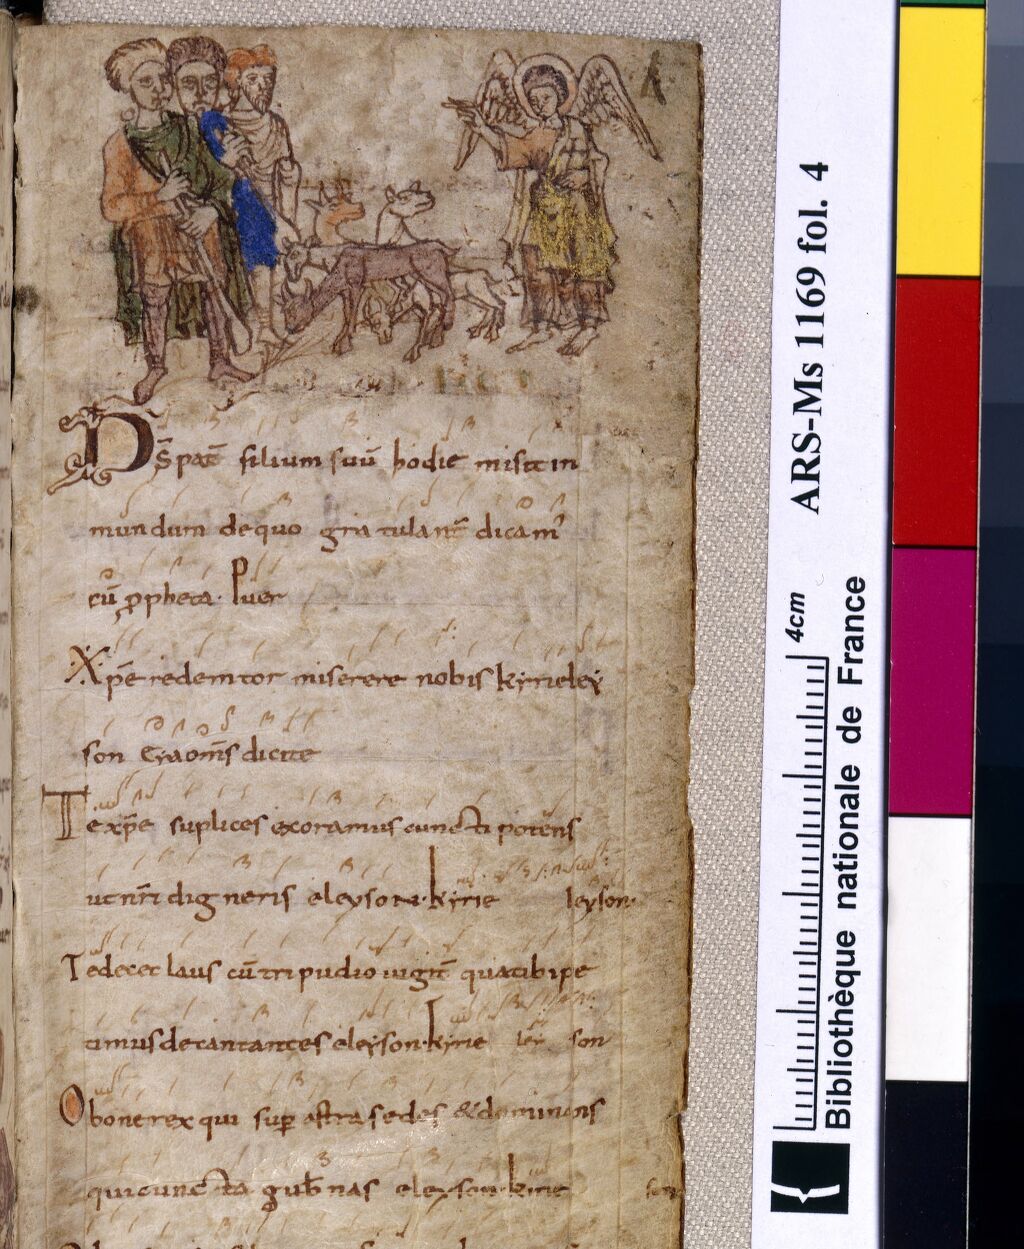 D̄s pat̄ filium suū hodie misit in
mundum de quo gratulant̄ dicam'
cū ꝓpheta. Puer
Xp̄e redemtor miserere nobis kyrieley
son Eia om̄s dicite
Te xp̄e suplices exoramus cunctipotens
ut nr̄i digneris eleyson. kyrie leyson
Te decet laus cū tripudio
timus decantantes eleyson. kyrie ley son
O bone rex qui sup̄ astra sedes & dominans
qui cuncta gub̄nas eleyson. kyrie
ARS-Ms 1169 fol. 4
4cm
Bibliothèque nationale de France